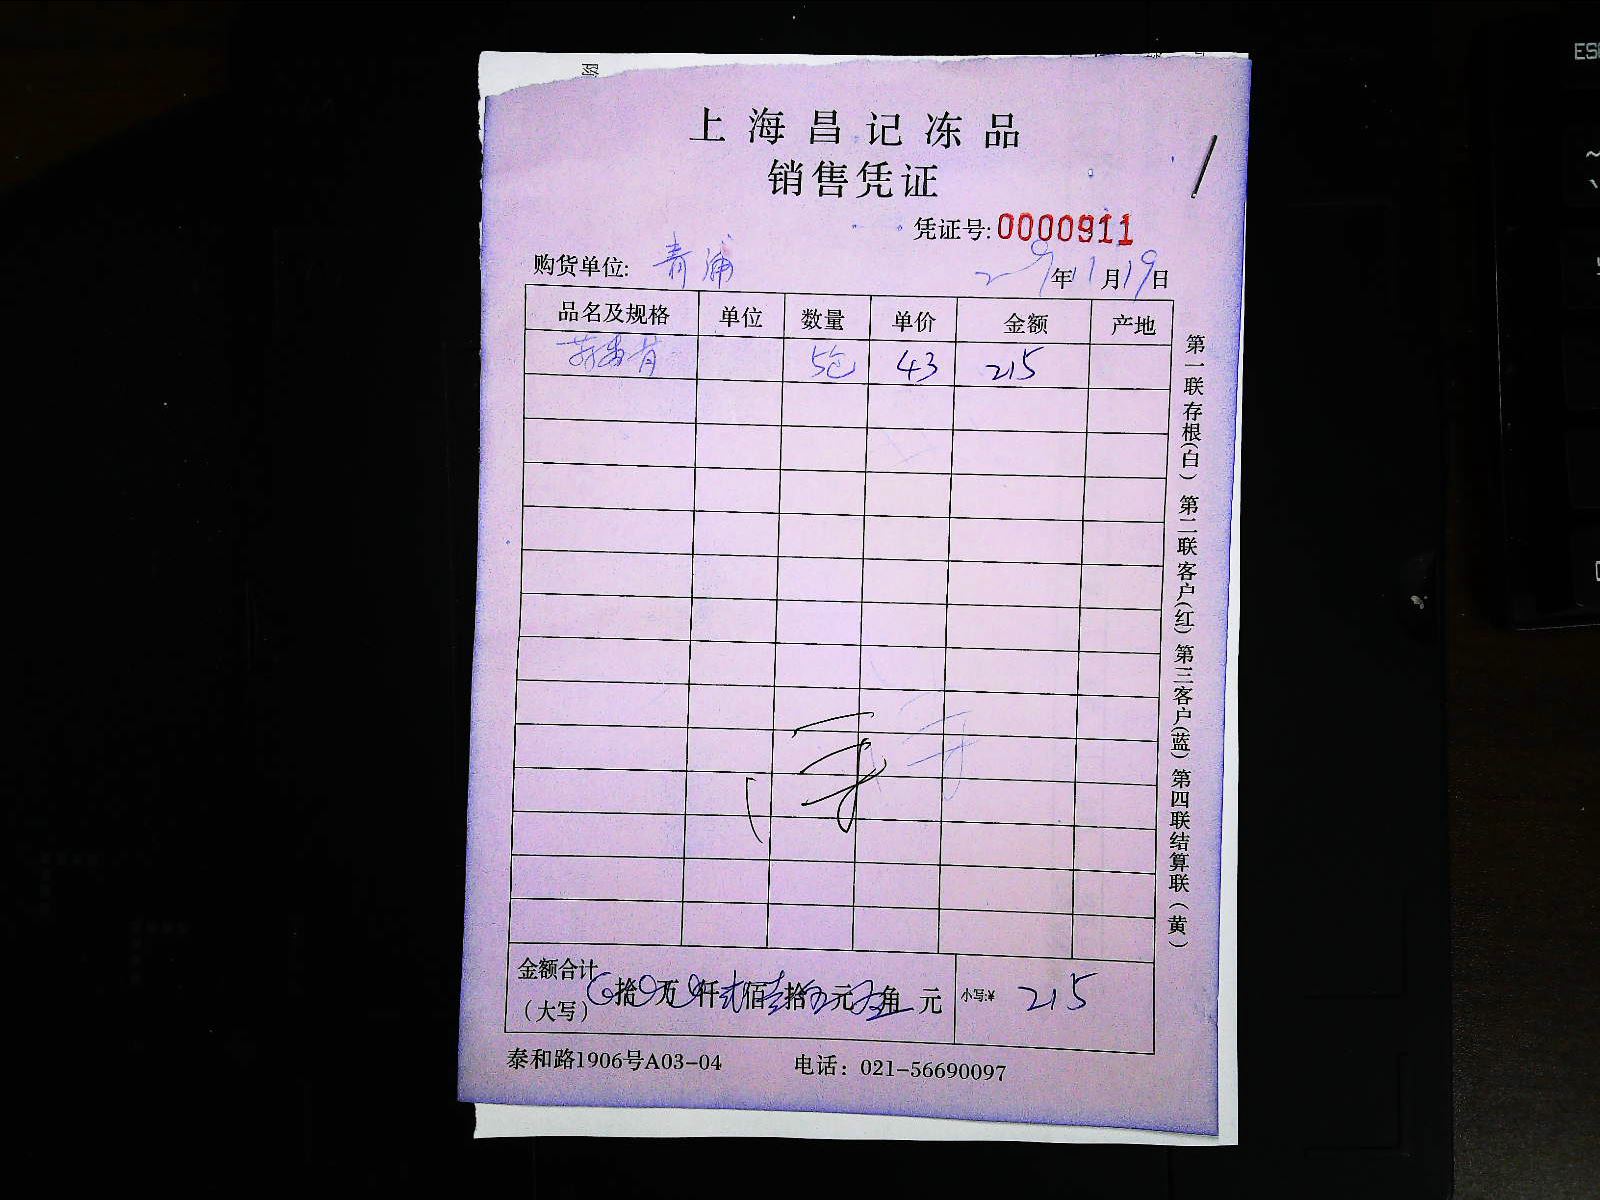 上海昌记冻品
销售凭证
凭证号:0000911
购货单位: 青浦 年11月19日
品名及规格 单位 数量 单价 金额 产地
5包 43 215
第一联存根(白) 第二联客户(红) 第三客户(蓝) 第四联结算联(黄)
金额合计
(大写) 拾 万 仟 贰佰壹拾 元 角 元 小写:¥ 215
泰和路1906号A03-04 电话: 021-56690097
ESC